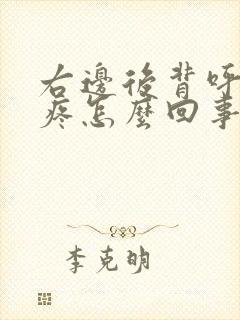 右邊後背呼
疼怎麼回事
李克明